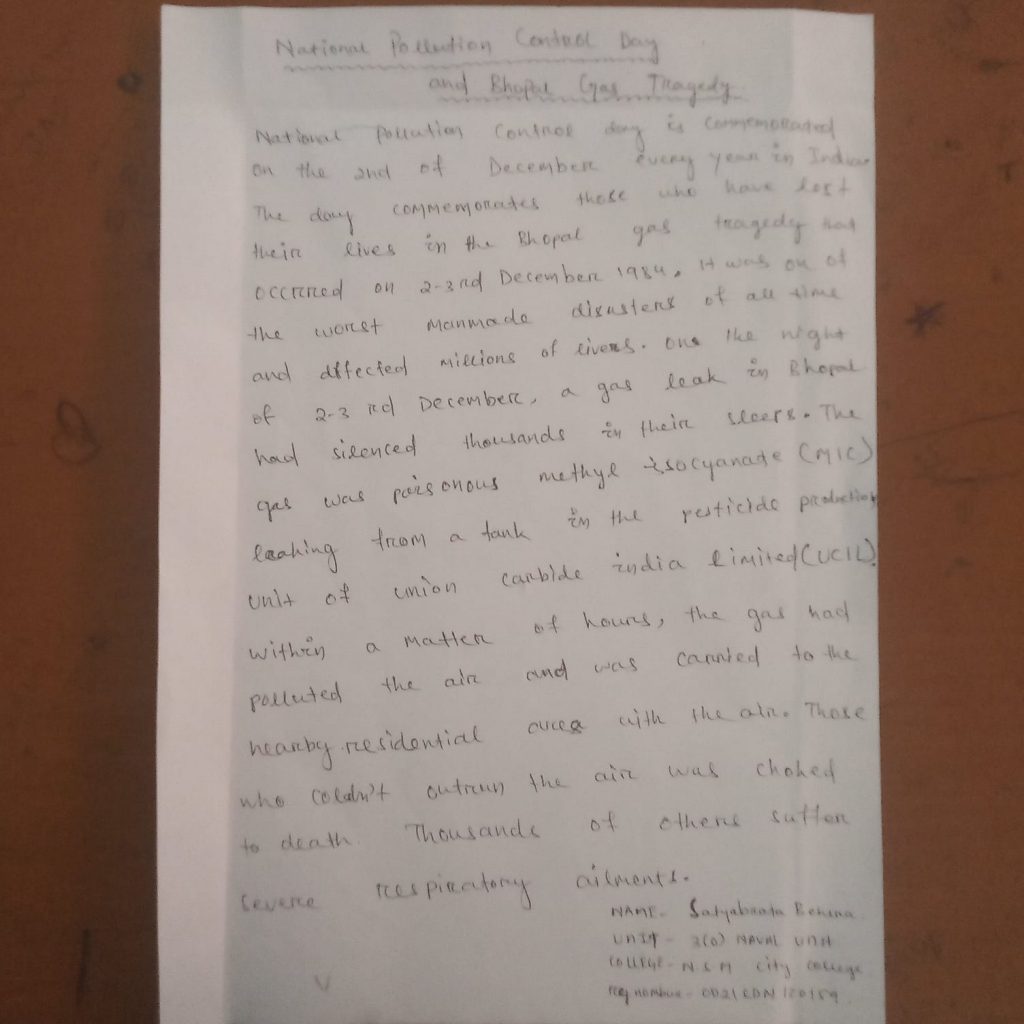 National Pollution Control Day
and Bhopal Gas Tragedy
National pollution control day is commemorated
on the 2nd of December every year in India
The day commemorates those who have lost
their lives in the Bhopal gas tragedy that
occrred on 2-3rd December 1984. It was on of
the worst manmade disasters of all time
and affected millions of livers. One the night
of 2-3 rd December, a gas leak in Bhopal
had silenced thousands in their sleers. The
gas was poisonous methyl isocyanate (MIC)
leaking from a tank in the pesticide production
unit of union carbide india limited (UCIL).
within a matter of hours, the gas had
polluted the air and was carried to the
nearby residential area with the air. Those
who coldn't outrun the air was choked
to death. Thousands of others suffer
severe respiratory ailments.
NAME- Satyabrata Behera
UNIT - 2(O) NAVAL UNIT
COLLEGE - N.S.M city college
Reg number -